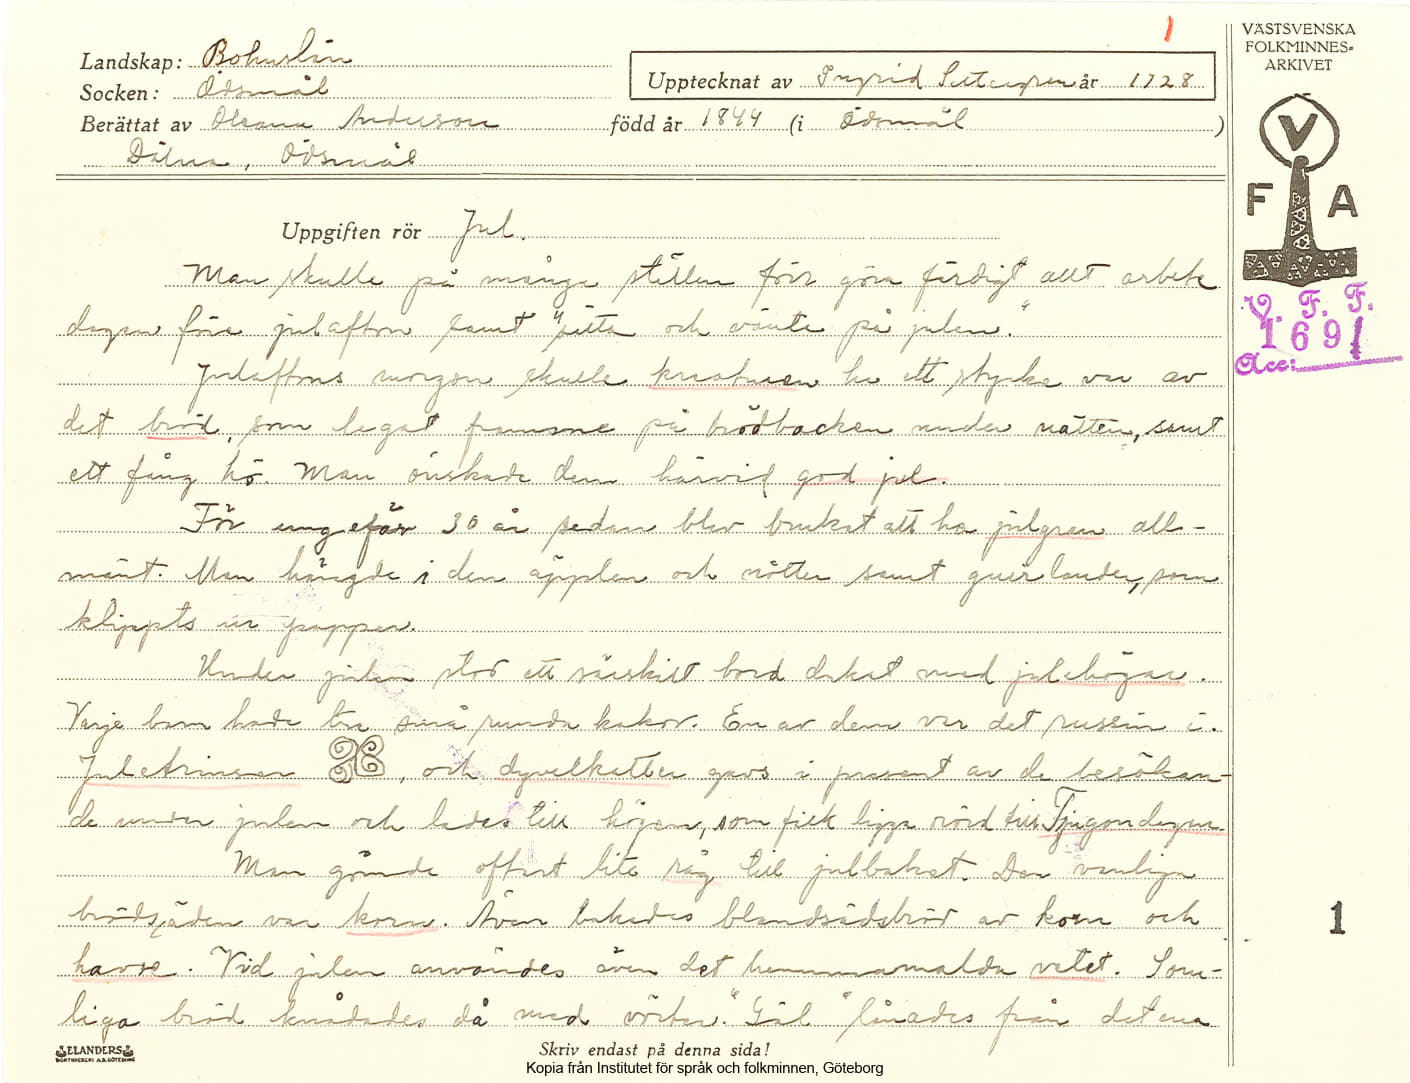 1
VÄSTSVENSKA
FOLKMINNES-
ARKIVET
Landskap: Bohuslän
Socken: Ödsmål
Upptecknat av Ingrid Settergren år 1928
Berättat av Oleana Anderson född år 1844 (i Ödsmål )
Dälna, Ödsmål
V
F A
V. F. F.
1691
Acc:
Uppgiften rör Jul.
Man skulle på många ställen förr göra färdigt allt arbete
dagen före julafton samt "sitta och vänta på julen."
Julaftons morgon skulle kreaturen ha ett stycke var av
det bröd, som legat framme på brödbacken under natten, samt
ett fång hö. Man önskade dem härvid god jul.
För ungefär 30 år sedan blev bruket att ha julgran all-
mänt. Man hängde i den äpplen och nötter samt guirlander, som
klippts ur papper.
Under julen stod ett särskilt bord dukat med julehögar.
Varje barn hade tre små runda kakor. En av dem var det russin i.
Juletrinsor , och dyvelkatter gavs i present av de besökan-
de under julen och lades till högen, som fick ligga rörd till Tjugondagen.
Man gömde oftast lite råg till julbaket. Den vanliga
brödsäden var korn. Även bakades blandsädsbröd av korn och
havre. Vid julen användes även det hemmamalda vetet. Som-
liga bröd knådades då med vörter. "Gäl" lånades från det ena
1
ELANDERS
BOKTRYCKERI A.B. GÖTEBORG
Skriv endast på denna sida!
Kopia från Institutet för språk och folkminnen, Göteborg